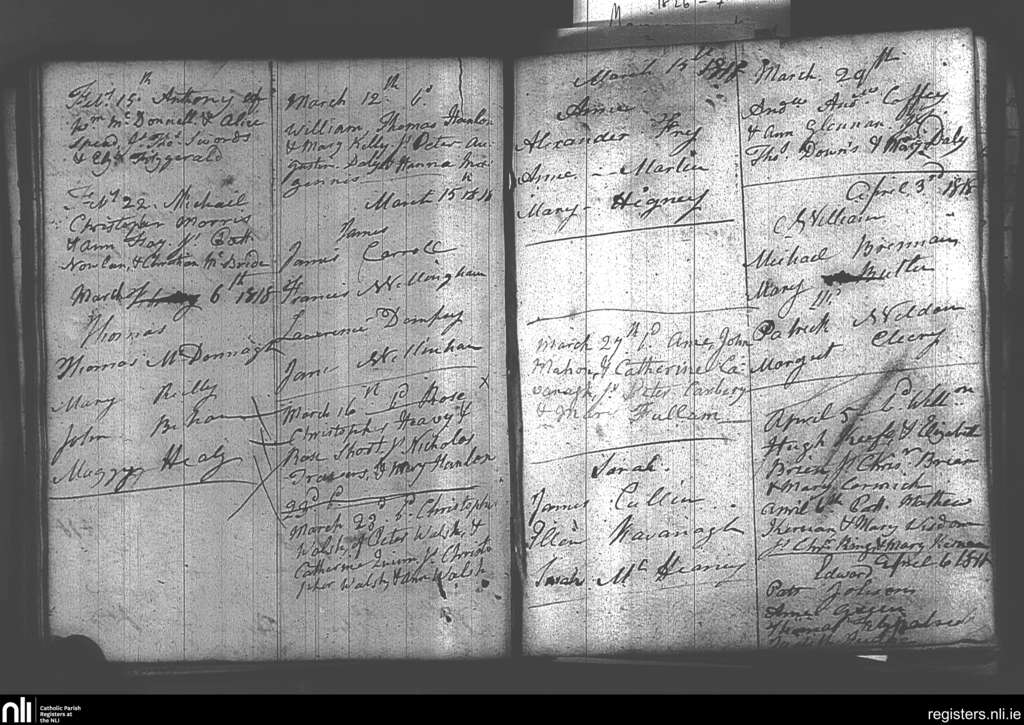 Feby. 15th Anthony of
Wm McDonnell & Alice
Spend, Thos Swords
& Fitzgerald
Feby. 22. Michael
Christopher Morris
& Ann Hay Patt
Nowlan, & Christian McBride
March 6th 1818
Thomas
Thomas McDonnagh
Mary Reilly
John Behan
Muggy Healy
March 12th bd
William Thomas Hanlon
& Mary Kelly Sps Peter Au-
gustin Daly & Hanna
March 15th 1818
James
James Carroll
Francis Wellingham
Lawrence Dempsy
Jane Wellinham
March 16th bd Rose
Christopher Heavy &
Rose Short Sps Nicholas
Travers, & Mary Hanlon
March 23d bd Christopher
Walsh, of Peter Walsh, &
Catherine Quinn Sps Christo
pher Walsh & Ann Walsh
March 15th 1818
Anne
Alexander Frey
Anne Martin
Mary Higney
March 27th bd Anne, John
Mahon, & Catherine Ca-
vanagh, Sps Peter Carbery
& Fullam
Sarah.
James Cullin
Ellen Kavanagh
Sarah McHeaney
March 29th
Andw Andw Coffey
& Ann Glennan
Thos Downs & Mary Daly
April 3rd 1818
William
Michael Brennan
Mary Butler
Patrick Weldon
Margret Cleary
April 5 bd William
Hugh Keefe & Elizabeth
Brien Sps Chrisr Brien
& Mary Cormick
April 6th Patt Mathew
Kernan & Mary Wisdom
Sps Chrisr King & Mary Kernan
April 6 1818
Edward
Patt Johnson
Anne Green
Thomas Fitzpatrick
1826
nli
Catholic Parish
Registers at
the NLI
registers.nli.ie